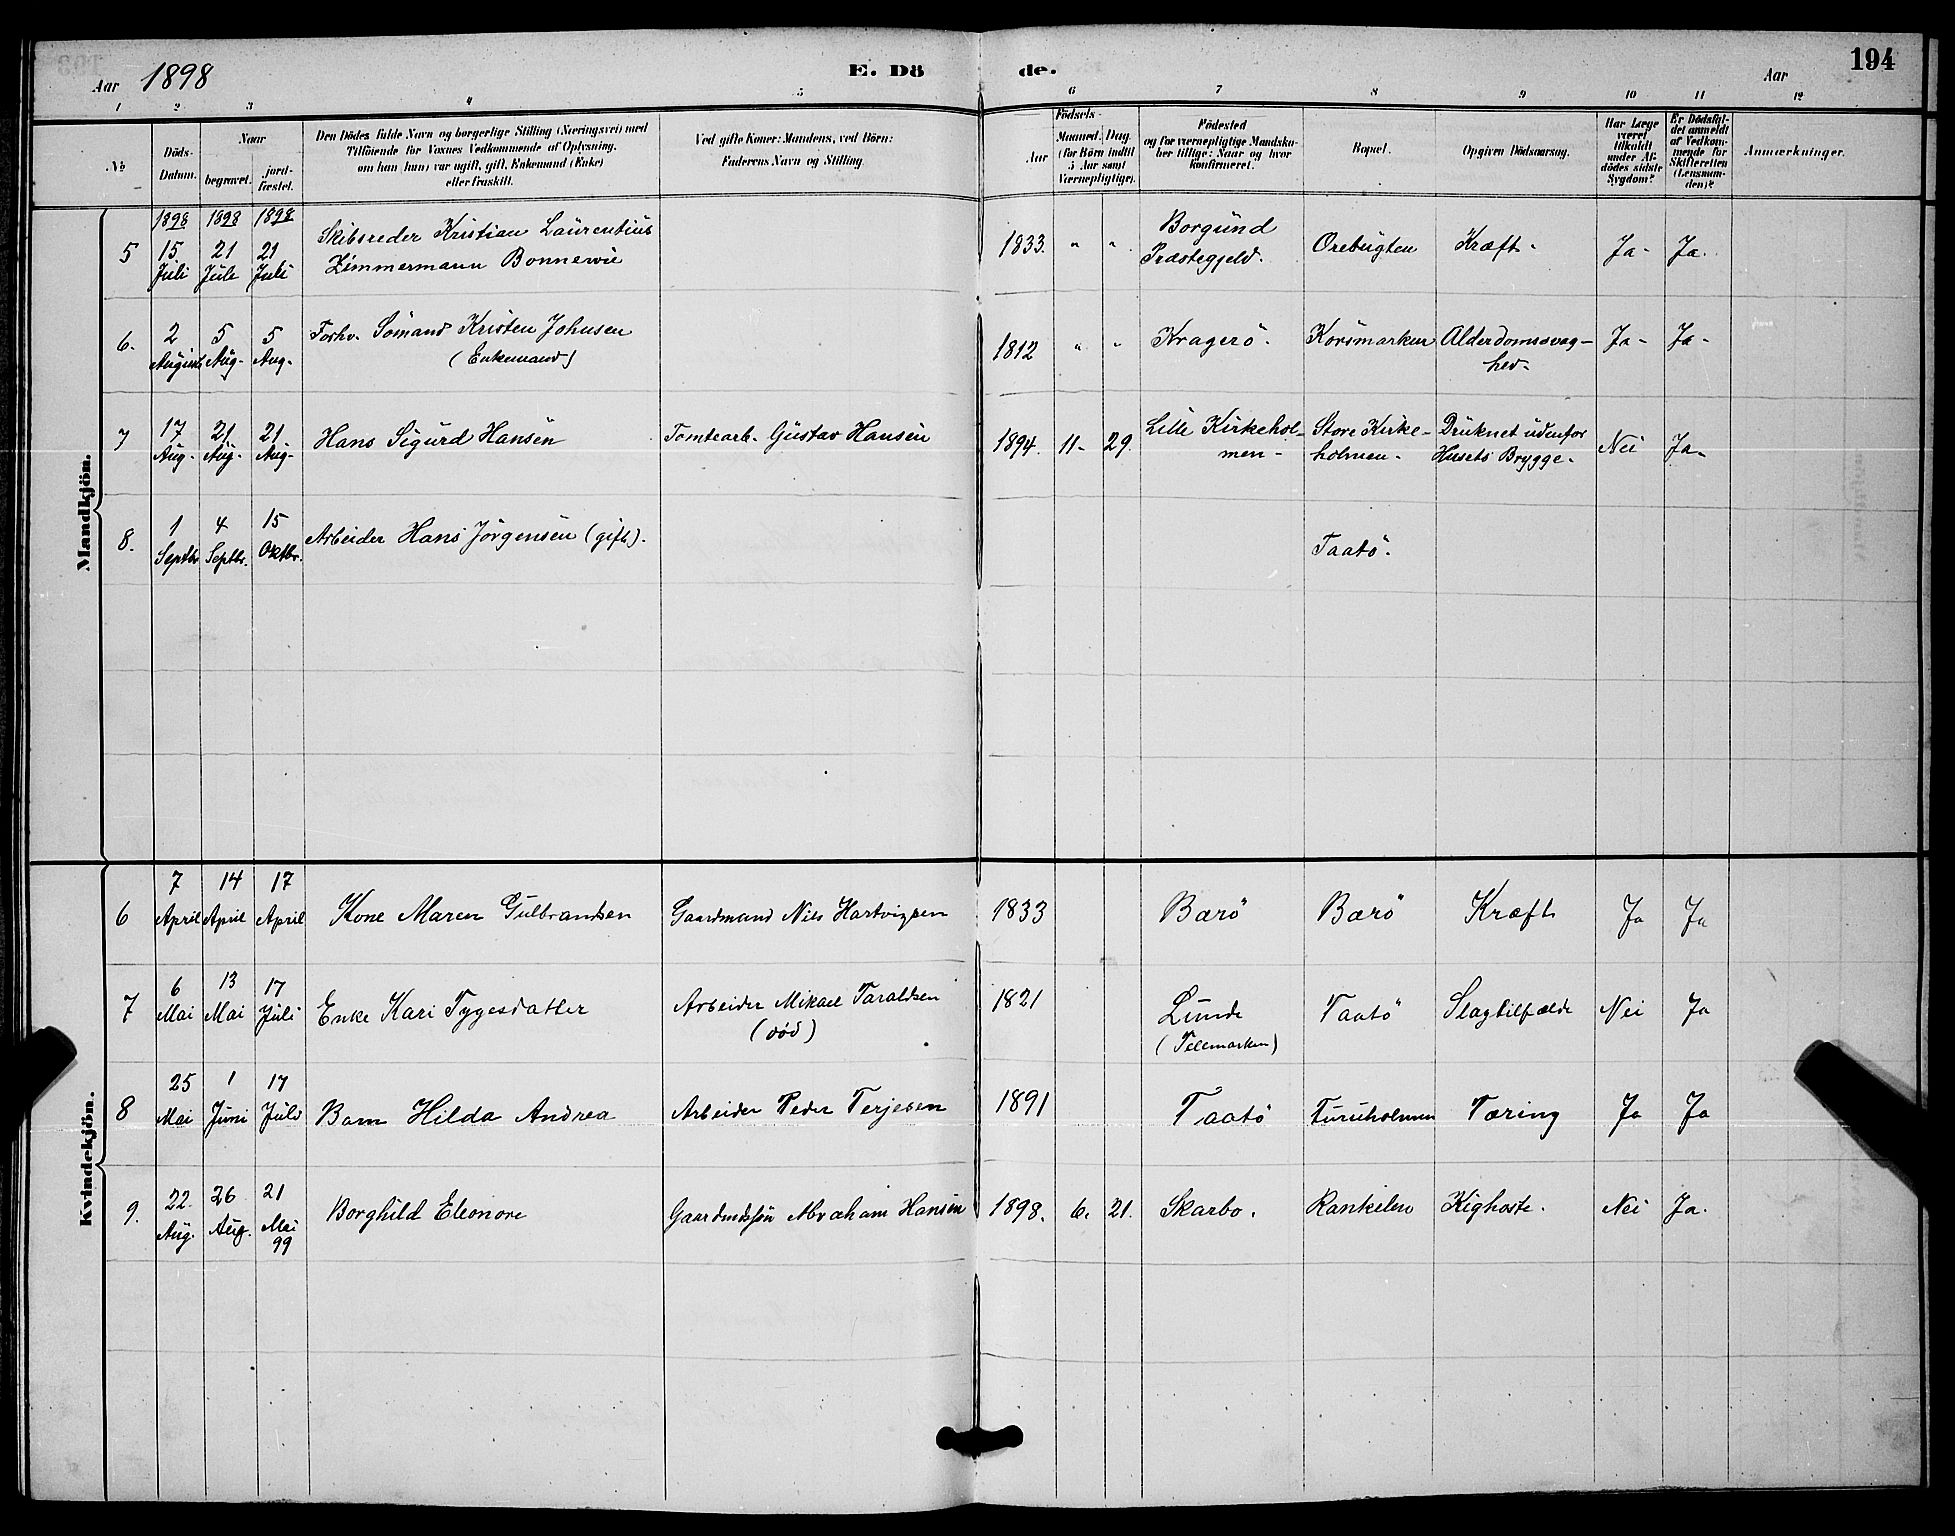 194
Aar 1898 E. Dö de. Aar
1 2 3 4 5 6 7 8 9 10 11 12
No
Döds-Datum.
Naar
begravet.
jord-fæstet.
Den Dödes fulde Navn og borgerlige Stilling (Næringsvei) med
Tilföiende for Voxnes Vedkommende af Oplysning,
om han (hun) var ugift, gift, Enkemand (Enke)
eller fraskilt.
Ved gifte Koner: Mandens, ved Börn:
Faderens Navn og Stilling.
Födsels-
Aar
Maaned. Dag
(for Börn indtil
5 Aar samt
Værnepligtige).
Födested
og for værnepligtige Mandskaber
tillige: Naar og hvor
konfirmeret.
Bopæl.
Opgiven Dödsaarsag.
Har Læge
været
tilkaldt
under Af-
dödes sidste
Sygdom?
Er Dödsfal-
det anmeldt
af Vedkom-
mende for
Skifteretten
(Lensman-
den)?
Anmærkninger.
Mandkjön.
1898 1898 1898
5 15 Juli 21 Juli 21 Juli Skibsreder Kristian Laurentius
Zimmermann Bonnevie 1833. " " Borgund
Præstegjeld. Örebugten Kræft- Ja- Ja.
6. 2 August 5 Aug- 5 Aug- Forhv. Sömand Kristen Johnsen
(Enkemand) 1812 " " Kragerö. Korsmarken Alderdomssvag-
hed- Ja- Ja-
7 17 Aug- 21 Aug- 21 Aug- Hans Sigurd Hansen Tomtearb. Gustav Hansen 1894. 11- 29. Lille Kirkehol-
men- Store Kirke-
holmen- Druknet udenfor
Husets Brygge- Nei Ja-
8. 1 Septbr 4 Septbr. 15 Oktbr. Arbeider Hans Jörgensen (gift). Taatö.
Kvindekjön.
6 7 April 14 April 17 April Kone Maren Gulbrandsen Gaardmand Nils Hartvigsen 1833 Barö Barö Kræft Ja Ja
7 6 Mai 13 Mai 17 Juli Enke Kari Tygesdatter Arbeider Mikael Taraldsen
(död) 1821 Lunde
(Telemarken) Taatö Slagtilfælde Nei Ja
8 25 Mai 1 Juni 17 Juli Barn Hilda Andrea Arbeider Peder Terjesen 1891 Taatö Furuholmen Tæring Ja Ja
9. 22. Aug. 26 Aug. 21 Mai 99 Borghild Eleonore Abraham Hansen 1898. 6. 21. Skarbo. Kighoste. Nei Ja.